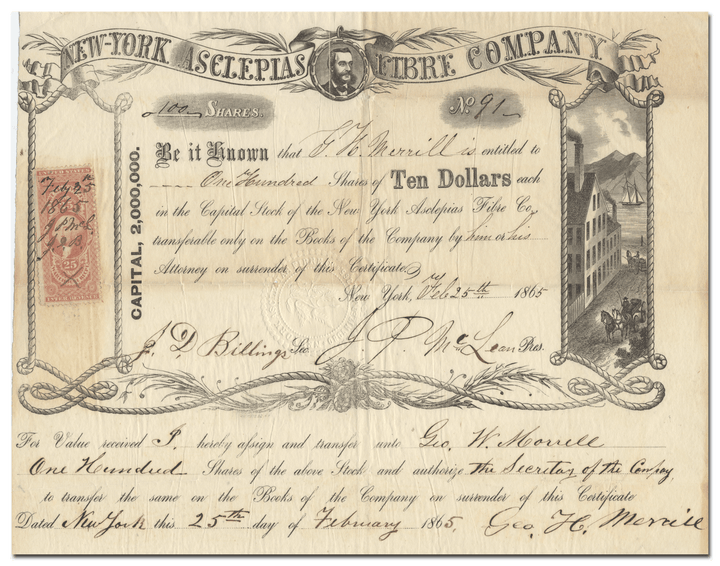 NEW-YORK ASCLEPIAS FIBRE COMPANY.
100 SHARES.
No. 91
Be it Known that G. H. Merrill is entitled to
One Hundred Shares of Ten Dollars each
in the Capital Stock of the New York Asclepias Fibre Co.
transferable only on the Books of the Company by him or his
Attorney on surrender of this Certificate.
New York, Feby 25th 1865
J. D Billings Sec. J. P. McLean Pres.
CAPITAL, 2,000,000.
Feby 25
1865
J P McL
J D B
25
For Value received I hereby assign and transfer unto Geo. W. Morrell
One Hundred Shares of the above Stock and authorize the Secretay of the Company
to transfer the same on the Books of the Company on surrender of this Certificate
Dated New York this 25th day of February 1865. Geo. H. Merrill